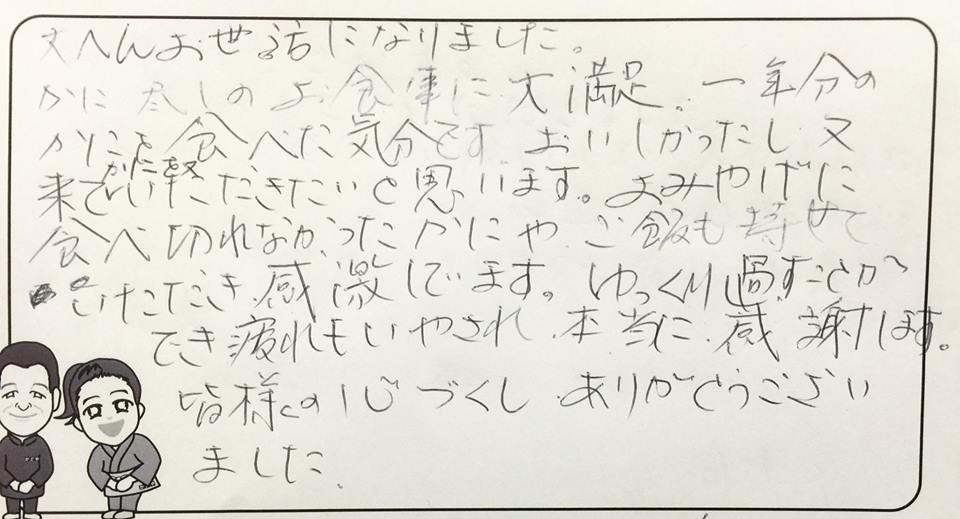 大へんお世話になりました。
かに尽しのお食事に大満足。一年分の
かにを食べた気分です。おいしかったし又
来ていただきたいと思います。おみやげに
食べ切れなかったかにや、ご飯も持せて
いただき、感激しています。ゆっくり過すことが
でき疲れもいやされ、本当に感謝します。
皆様の心づくし、ありがとうござい
ました。